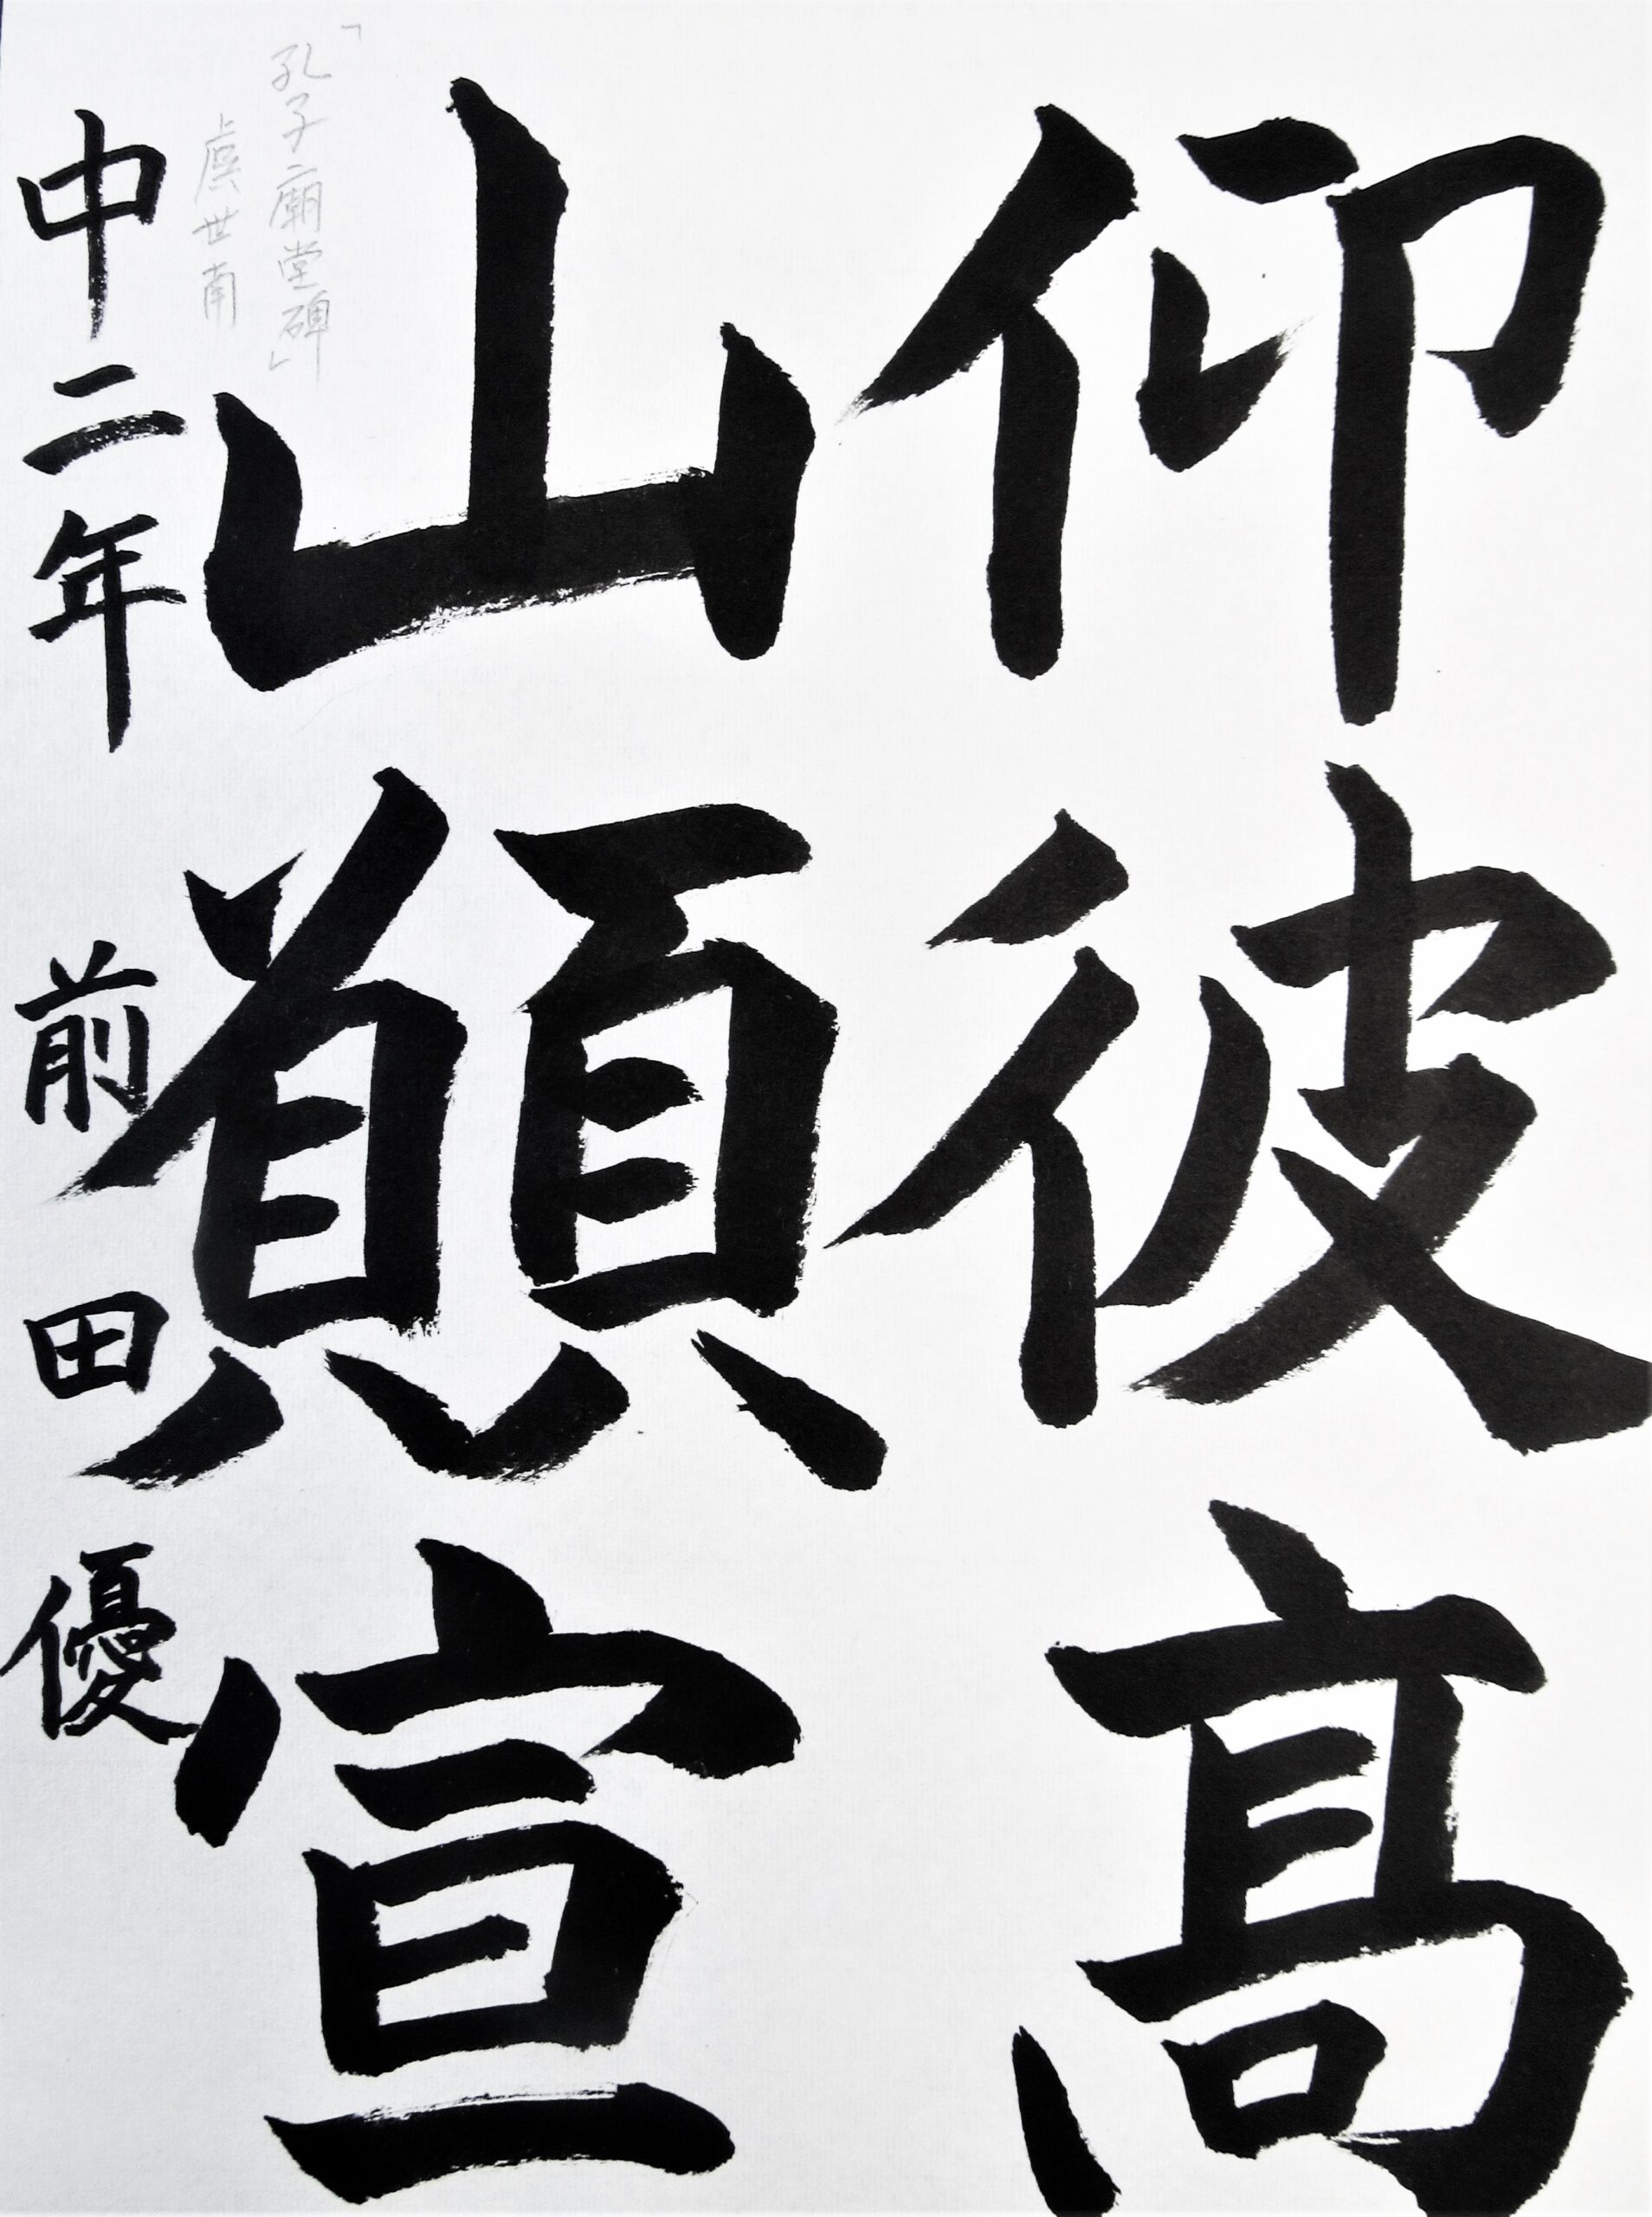 仰彼髙
山願宣
「孔子廟堂碑」
虞世南
中二年 前田優